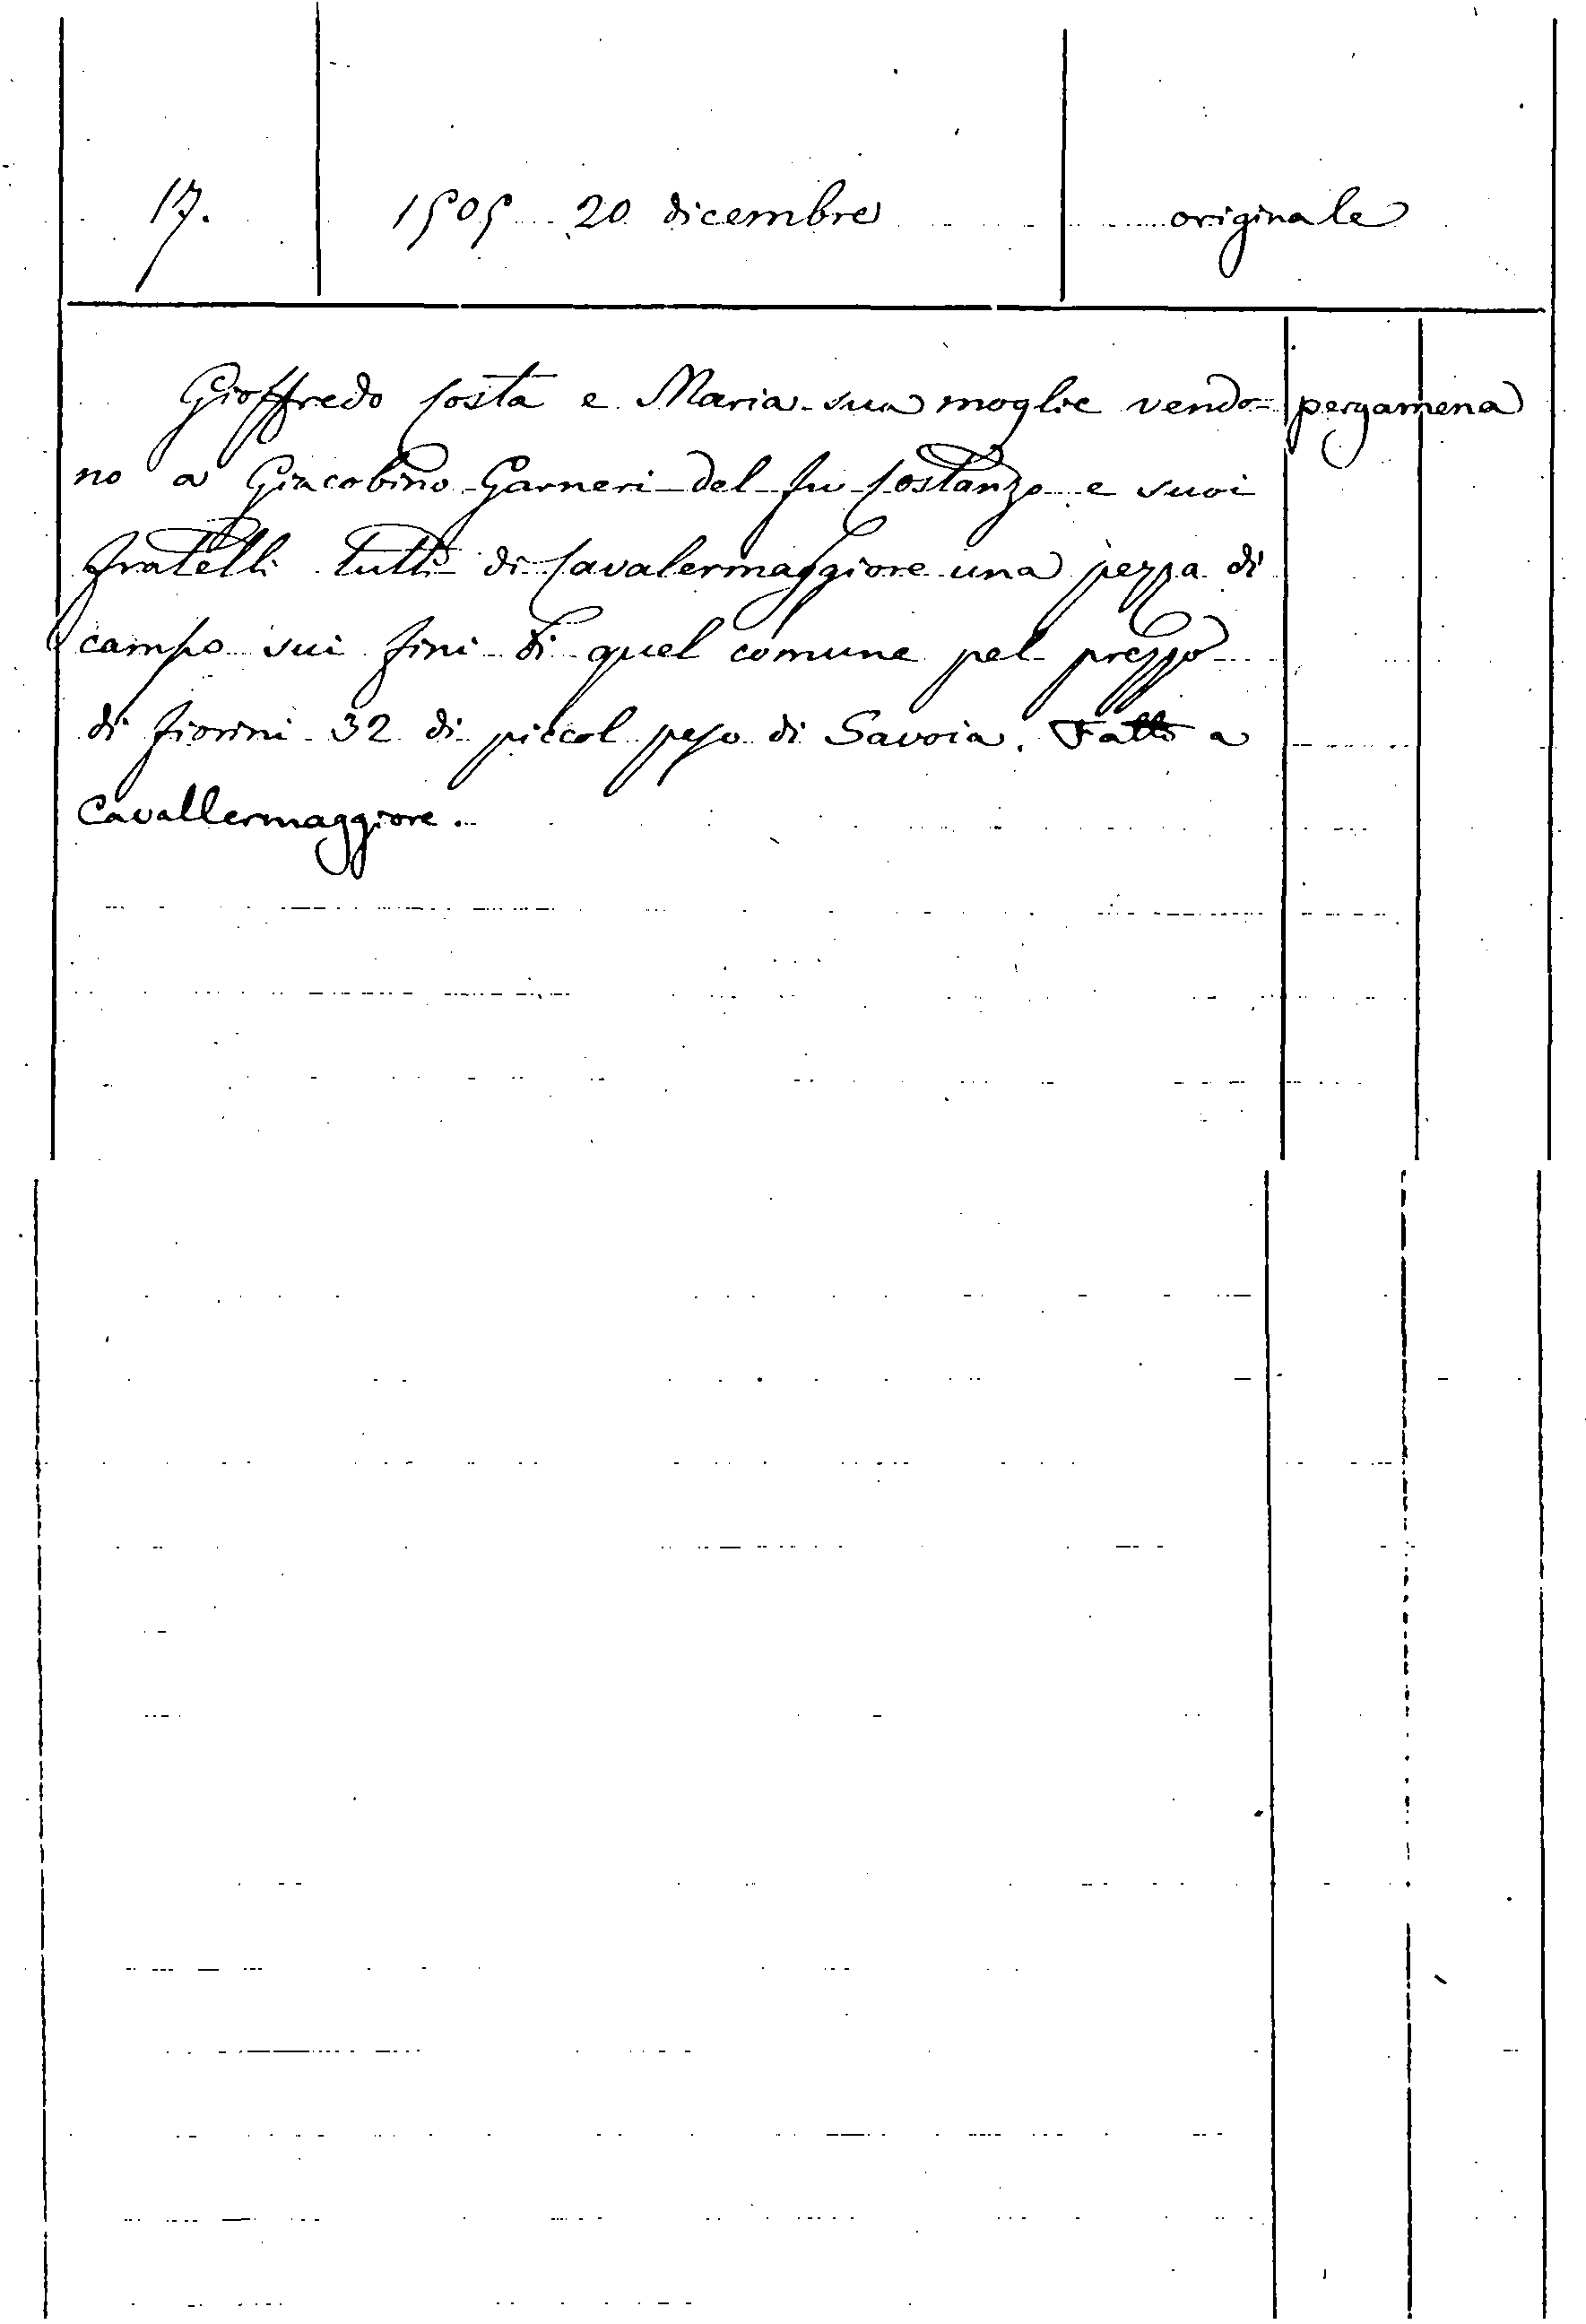 17. 1505 20 dicembre originale
Gioffredo Costa e Maria sua moglie vendo= pergamena
no a Giacobino Garneri del fu Costanzo e suoi
fratelli tutti di Cavalermaggiore una pezza di
campo sui fini di quel comune pel prezzo
di fiorini 32 di piccol peso di Savoia. Fatto a
Cavallermaggiore.